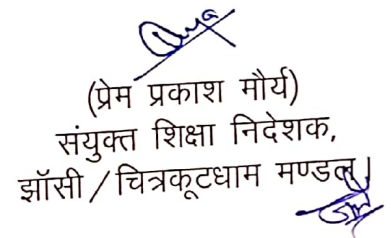 (प्रेम प्रकाश मौर्य)
संयुक्त शिक्षा निदेशक,
झॉसी / चित्रकूटधाम मण्डल।